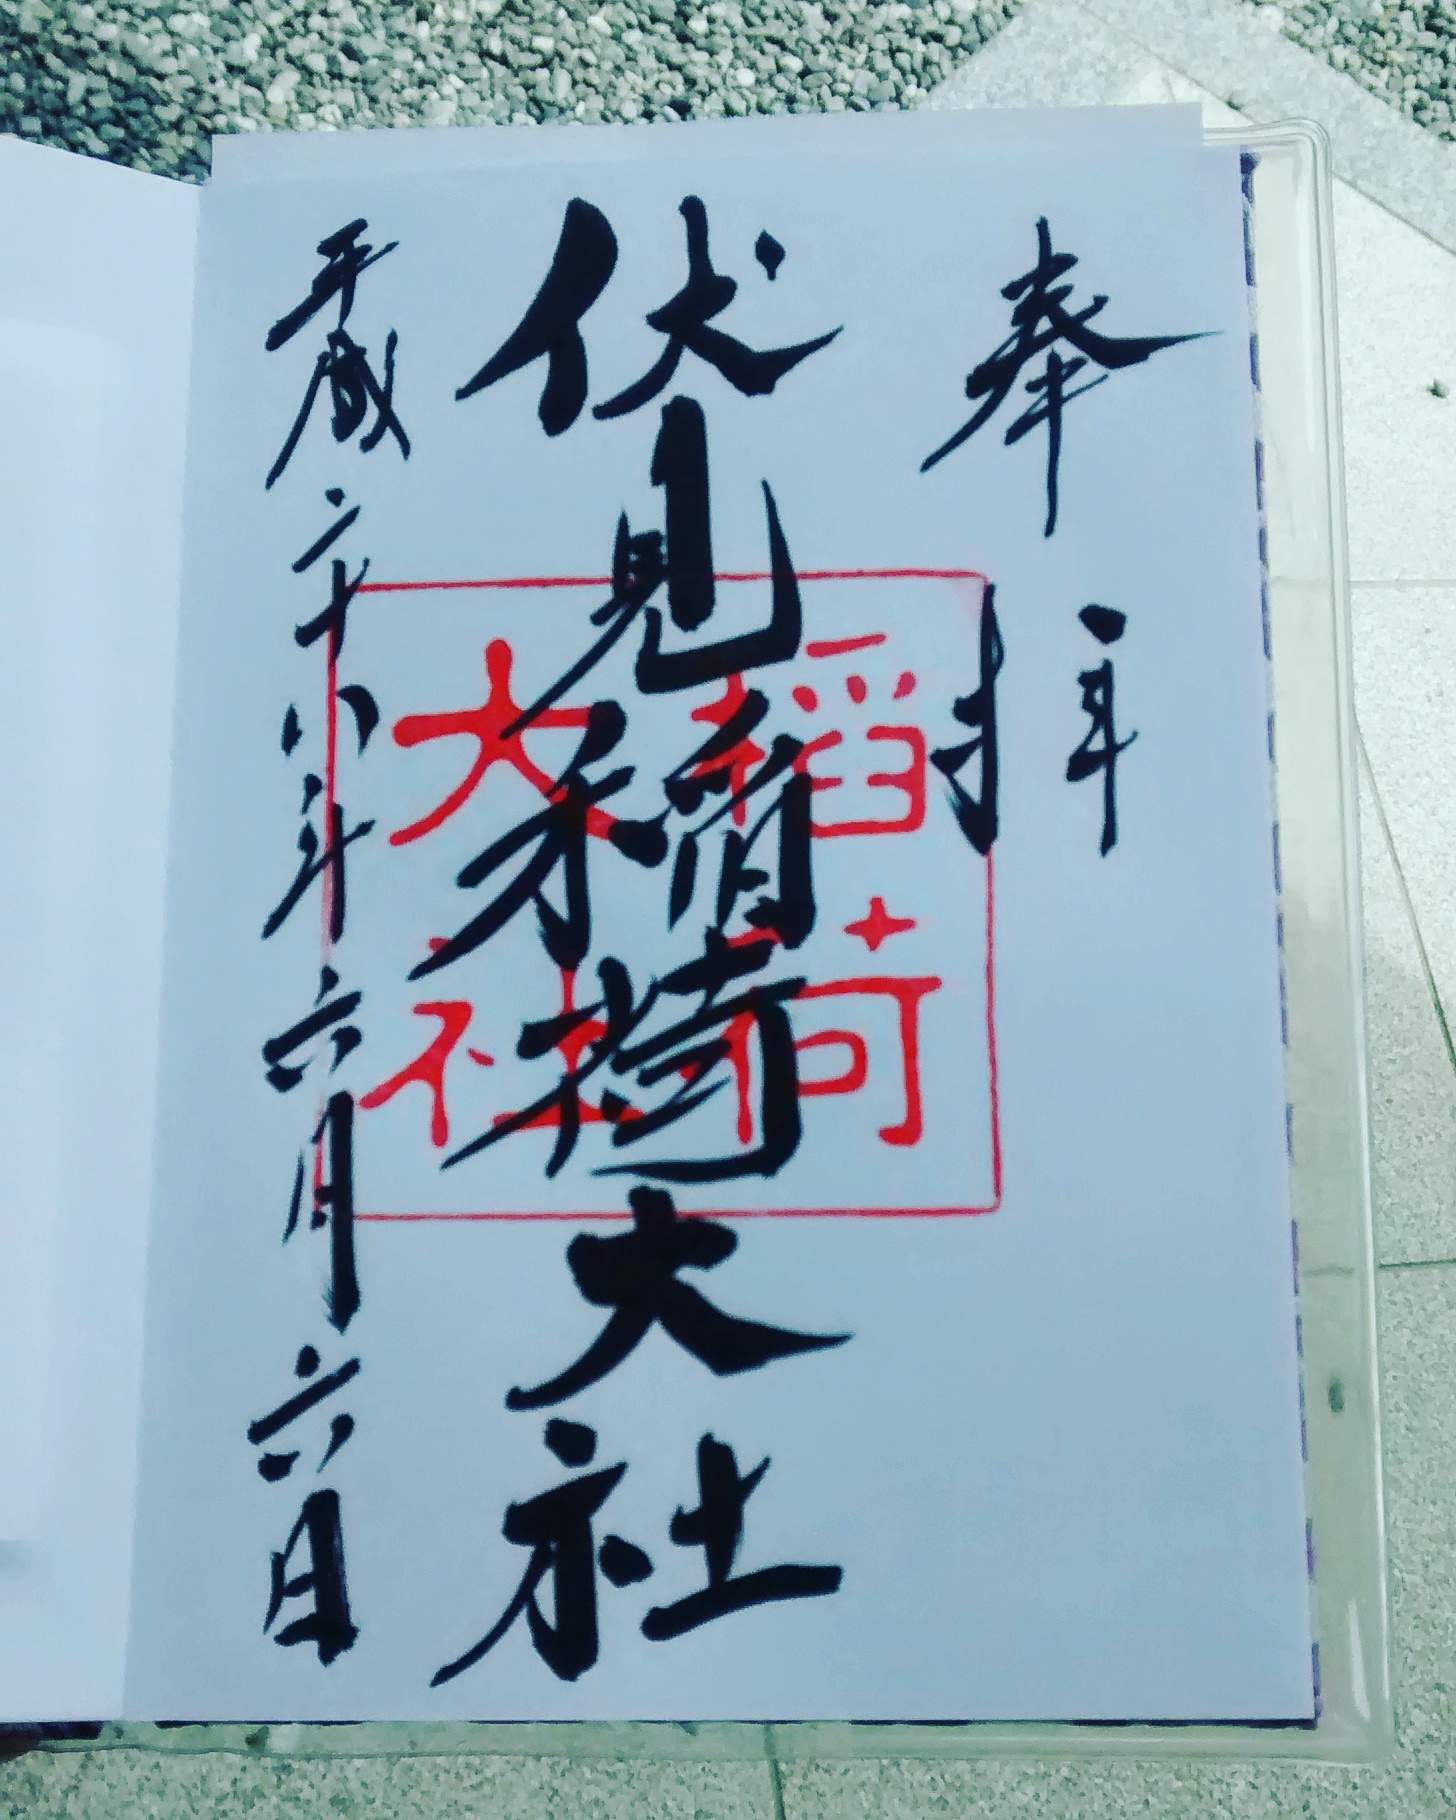 奉拝
伏見稲荷大社
稲荷
大社
平成二十八年六月六日